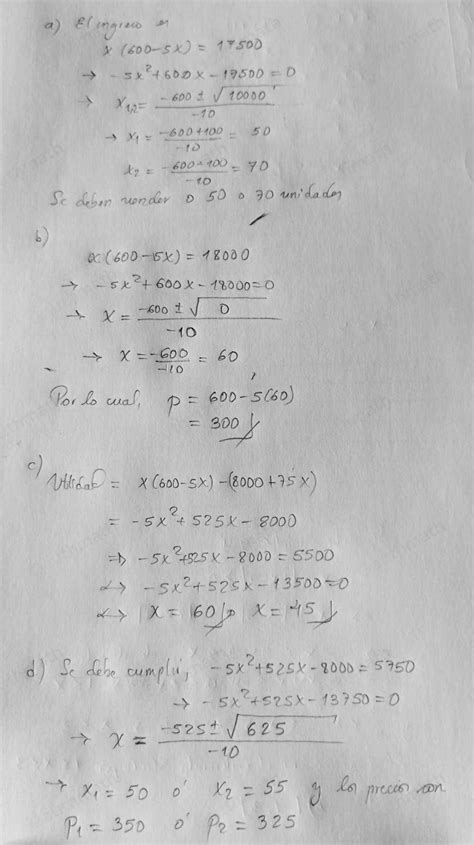 a) El ingreso es
x(600-5x) = 17500
→ -5x²+600x-17500=0
→ x₁,₂= (-600 ± √10000)/-10
→ x₁ = (-600+100)/-10 = 50
x₂ = (-600-100)/-10 = 70
Se deben vender o 50 o 70 unidades
b)
x(600-5x) = 18000
→ -5x²+600x-18000=0
→ x = (-600 ± √0)/-10
→ x = -600/-10 = 60
Por lo cual, p = 600-5(60)
= 300
c)
Utilidad = x(600-5x)-(8000+75x)
= -5x²+525x-8000
⇒ -5x²+525x-8000=5500
↔ -5x²+525x-13500=0
↔ x = 60 o x = 45
d) Se debe cumplir, -5x²+525x-8000=5750
→ -5x²+525x-13750=0
→ x = (-525±√625)/-10
→ x₁ = 50 ó x₂ = 55 y los precios son
P₁ = 350 ó P₂ = 325